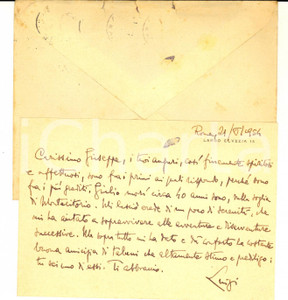 Roma, 21/VI/1954
LARGO CRVEZIA 12
Carissimo Giuseppe, i tuoi auguri, così finemente spiritosi
e affettuosi, sono fra i primi ai quali rispondo, perché sono
fra i più graditi. Giulio morì circa 40 anni sono, sulla soglia
di Montecitorio. Mi lasciò erede di un poco di serenità, che
mi ha aiutato a sopravvivere alle avventure e disavventure
successive. Ma sopra tutto mi ha dato e dà conforto la costante
buona amicizia di taluni che altamente stimo e prediligo:
tu sei uno di essi. Ti abbraccio.
Luigi